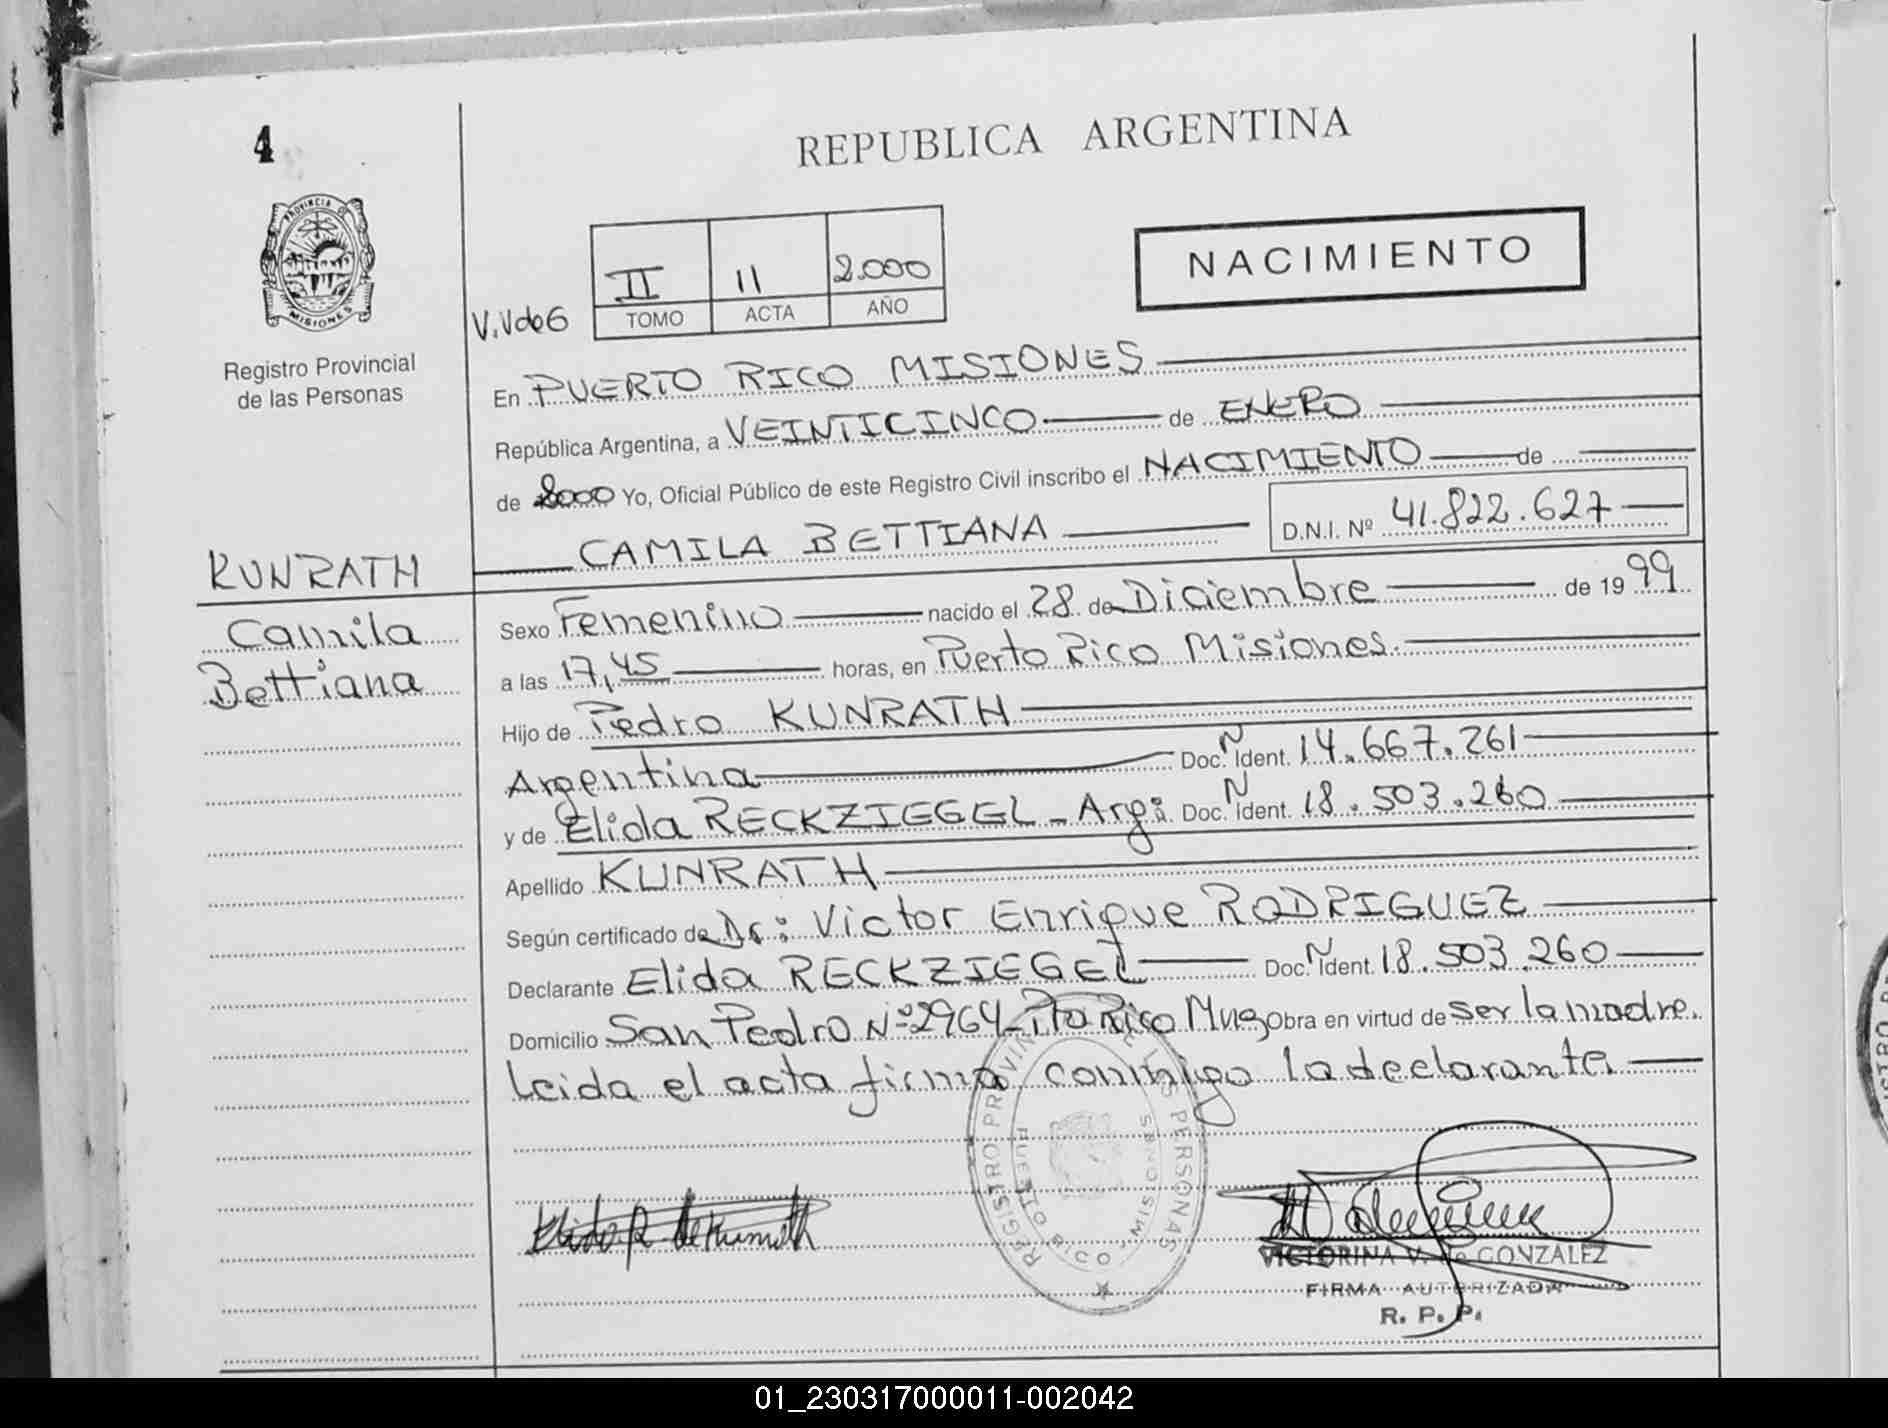 4
REPUBLICA ARGENTINA
PROVINCIA DE
MISIONES
Registro Provincial
de las Personas
NACIMIENTO
II 11 2.000
TOMO ACTA AÑO
V.VdeG
En PUERTO RICO MISIONES
República Argentina, a VEINTICINCO de ENERO
de 2000 Yo, Oficial Público de este Registro Civil inscribo el NACIMIENTO de
CAMILA BETTIANA D.N.I. Nº 41.822.627
KUNRATH
Camila
Bettiana
Sexo Femenino nacido el 28 de Diciembre de 1999
a las 17,45 horas, en Puerto Rico Misiones.
Hijo de Pedro KUNRATH
Argentina Doc. N Ident. 14.667.261
y de Elida RECKZIEGEL - Arg: Doc. N Ident. 18.503.260
Apellido KUNRATH
Según certificado de Dr: Victor Enrique RODRIGUEZ
Declarante Elida RECKZIEGEL Doc. N Ident. 18.503.260
Domicilio San Pedro Nº 2964 - Pto Rico Mnes Obra en virtud de ser la madre.
Leida el acta firma conmigo la declarante.
REGISTRO PROVINCIAL DE LAS PERSONAS
PUERTO RICO - MISIONES
Elida R. de Kunrath
VICTORINA V. de GONZALEZ
FIRMA AUTORIZADA
R. P. P.
01_230317000011-002042